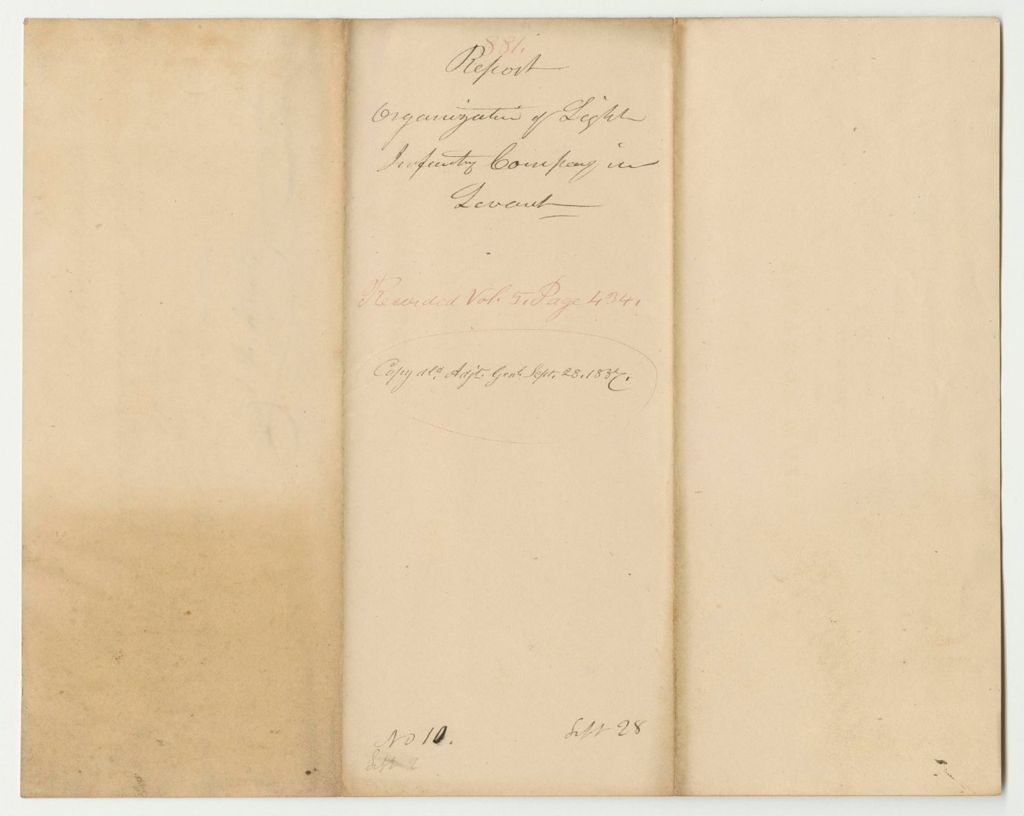 881.
Report
Organization of Light
Infantry Company in
Levant
Recorded Vol. 5. Page 434.
Copy dld. Adjt. Genl. Sept. 28. 1837.
No 10.
Sept 28
Sept 2